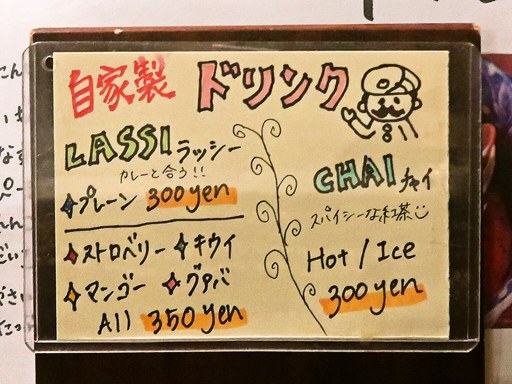 自家製 ドリンク
LASSI ラッシー
カレーと合う!!
プレーン 300yen
ストロベリー キウイ
マンゴー グァバ
All 350yen
CHAI チャイ
スパイシーな紅茶
Hot / Ice
300yen